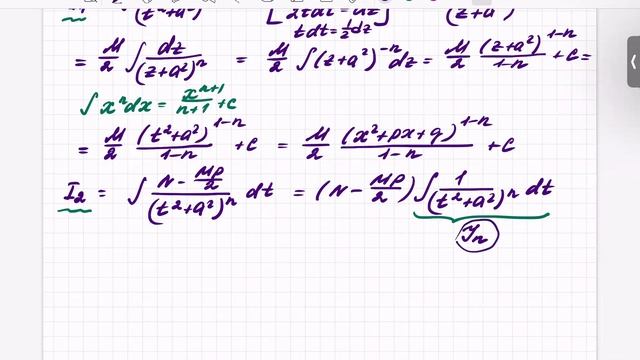 (t²+a²) [2tdt = dz] (z+a²)
tdt = ½dz
= M/2 ∫ dz/(z+a²)ⁿ = M/2 ∫(z+a²)⁻ⁿ dz = M/2 (z+a²)¹⁻ⁿ/(1-n) + C =
∫xⁿdx = xⁿ⁺¹/(n+1) + C
= M/2 (t²+a²)¹⁻ⁿ/(1-n) + C = M/2 (x²+px+q)¹⁻ⁿ/(1-n) + C
I₂ = ∫ (N - Mp/2)/(t²+a²)ⁿ dt = (N - Mp/2) ∫ 1/(t²+a²)ⁿ dt
Yₙ